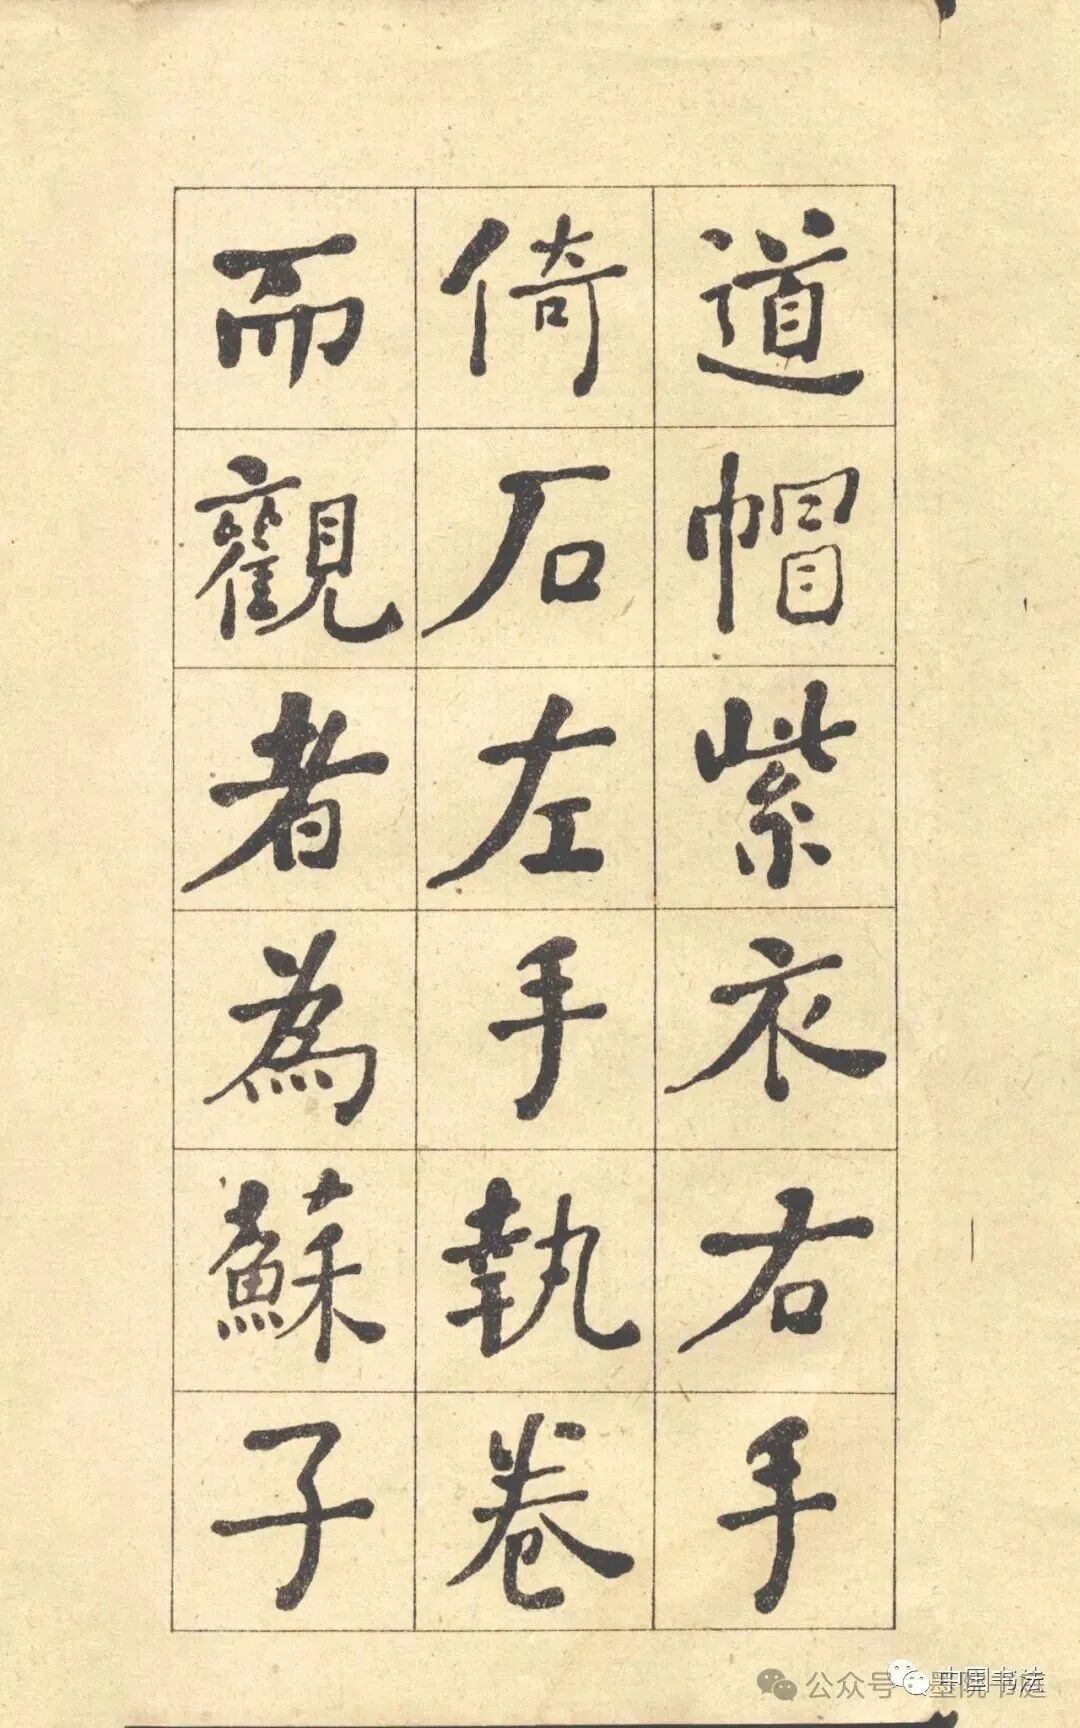 道帽紫衣右手
倚石左手執卷
而觀者為蘇子
公众号
中国书法